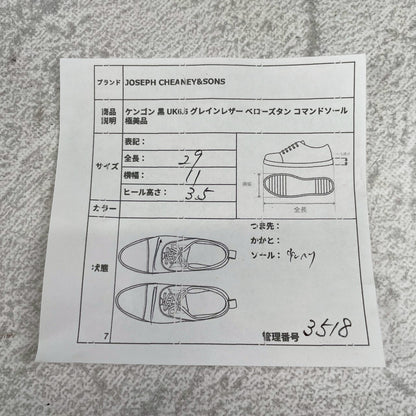 ブランド JOSEPH CHEANEY&SONS
商品説明 ケンゴン 黒 UK6.5 グレインレザー ベローズタン コマンドソール
極美品
サイズ
表記：
全長： 29
横幅： 11
ヒール高さ： 3.5
横幅
全長
カラー
状態
つま先：
かかと：
ソール：
7
管理番号 3518